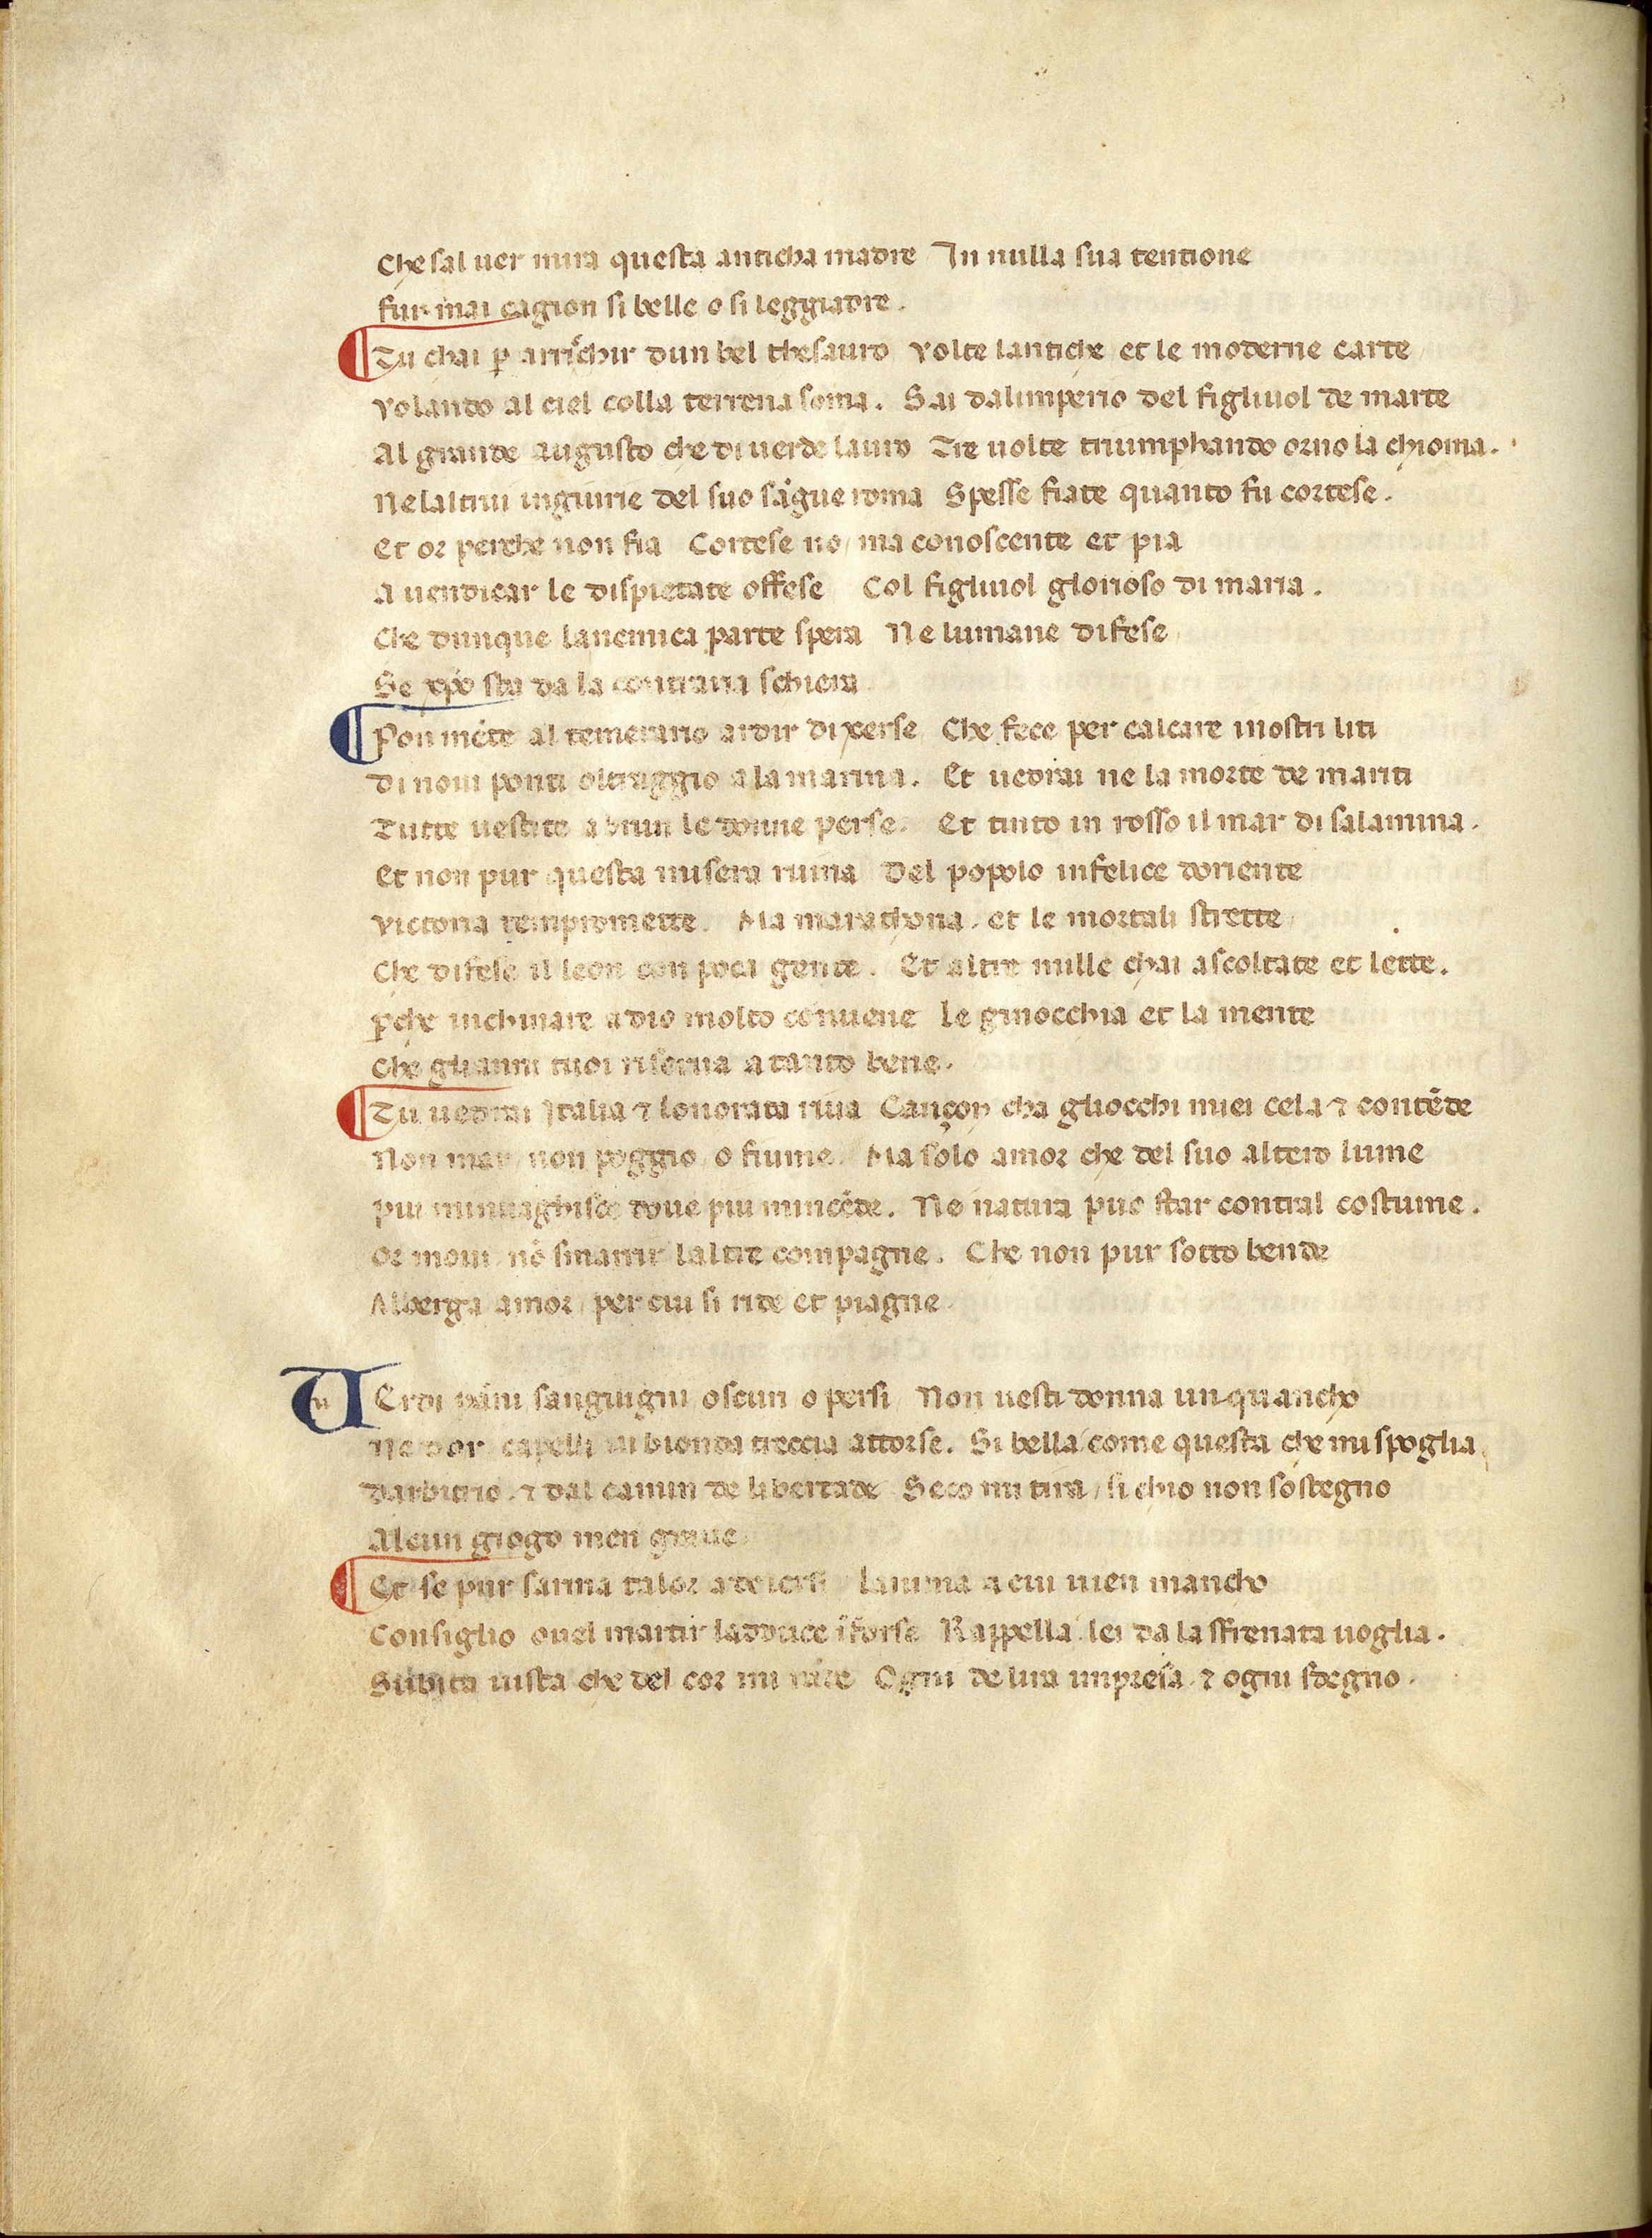 Che sal uer mira questa anticha madre In nulla sua tentione
fur mai cagion si belle o si leggiadre.
Tu chai p̱ arrichir dun bel thesauro volte lantiche et le moderne carte
volando al ciel colla terrena soma. Sai dalimperio del figliuol de marte
Al grande augusto che di uerde lauro Tre uolte triumphando orno la chioma.
Nelaltrui ingiurie del suo sāgue roma Spesse fiate quanto fu cortese.
Et or perche non fia Cortese no / ma conoscente et pia
A uendicar le dispietate offese Col figliuol glorioso di maria.
Che dunque lanemica parte spera Ne lumane difese
Se xpō sta da la contraria schiera
Pon mēte al temerario ardir di xerse Che fece per calcare i nostri liti
di noui ponti oltraggio a la marina. Et uedrai ne la morte de mariti
Tutte uestite a brun le donne perse. Et tinto in rosso il mar di salamina.
Et non pur questa misera ruina Del popolo infelice doriente
victoria tempromette. Ma marathona. et le mortali strette
Che difese il leon con poca gente. Et altre mille chai ascoltate et lette.
p̱che inchinare a dio molto conuene le ginocchia et la mente
Che gli anni tuoi riserua a tanto bene.
Tu uedrai Italia ⁊ lonorata riua Cançon cha gliocchi miei cela ⁊ contēde
Non mar / non poggio / o fiume. Ma solo amor che del suo altero lume
piu minuaghisce doue piu mincēde. Ne natura puo star contral costume.
Or moui / nō smarrir laltre compagne. Che non pur sotto bende
Alberga amor / per cui si ride et piagne.
VErdi pāni sanguigni oscuri o persi Non uesti donna unquancho
Ne dor capelli in bionda treccia attorse. Si bella come questa che mi spoglia
darbitrio. ⁊ dal camin de libertade Seco mi tira / si chio non sostegno
Alcun giogo men graue
Et se pur sarma talor a dolersi lanima a cui uien mancho
Consiglio ouel martir ladduce ī forse Rappella lei da la sfrenata uoglia.
Subita uista che del cor mi rade Ogni delira impresa ⁊ ogni sdegno.